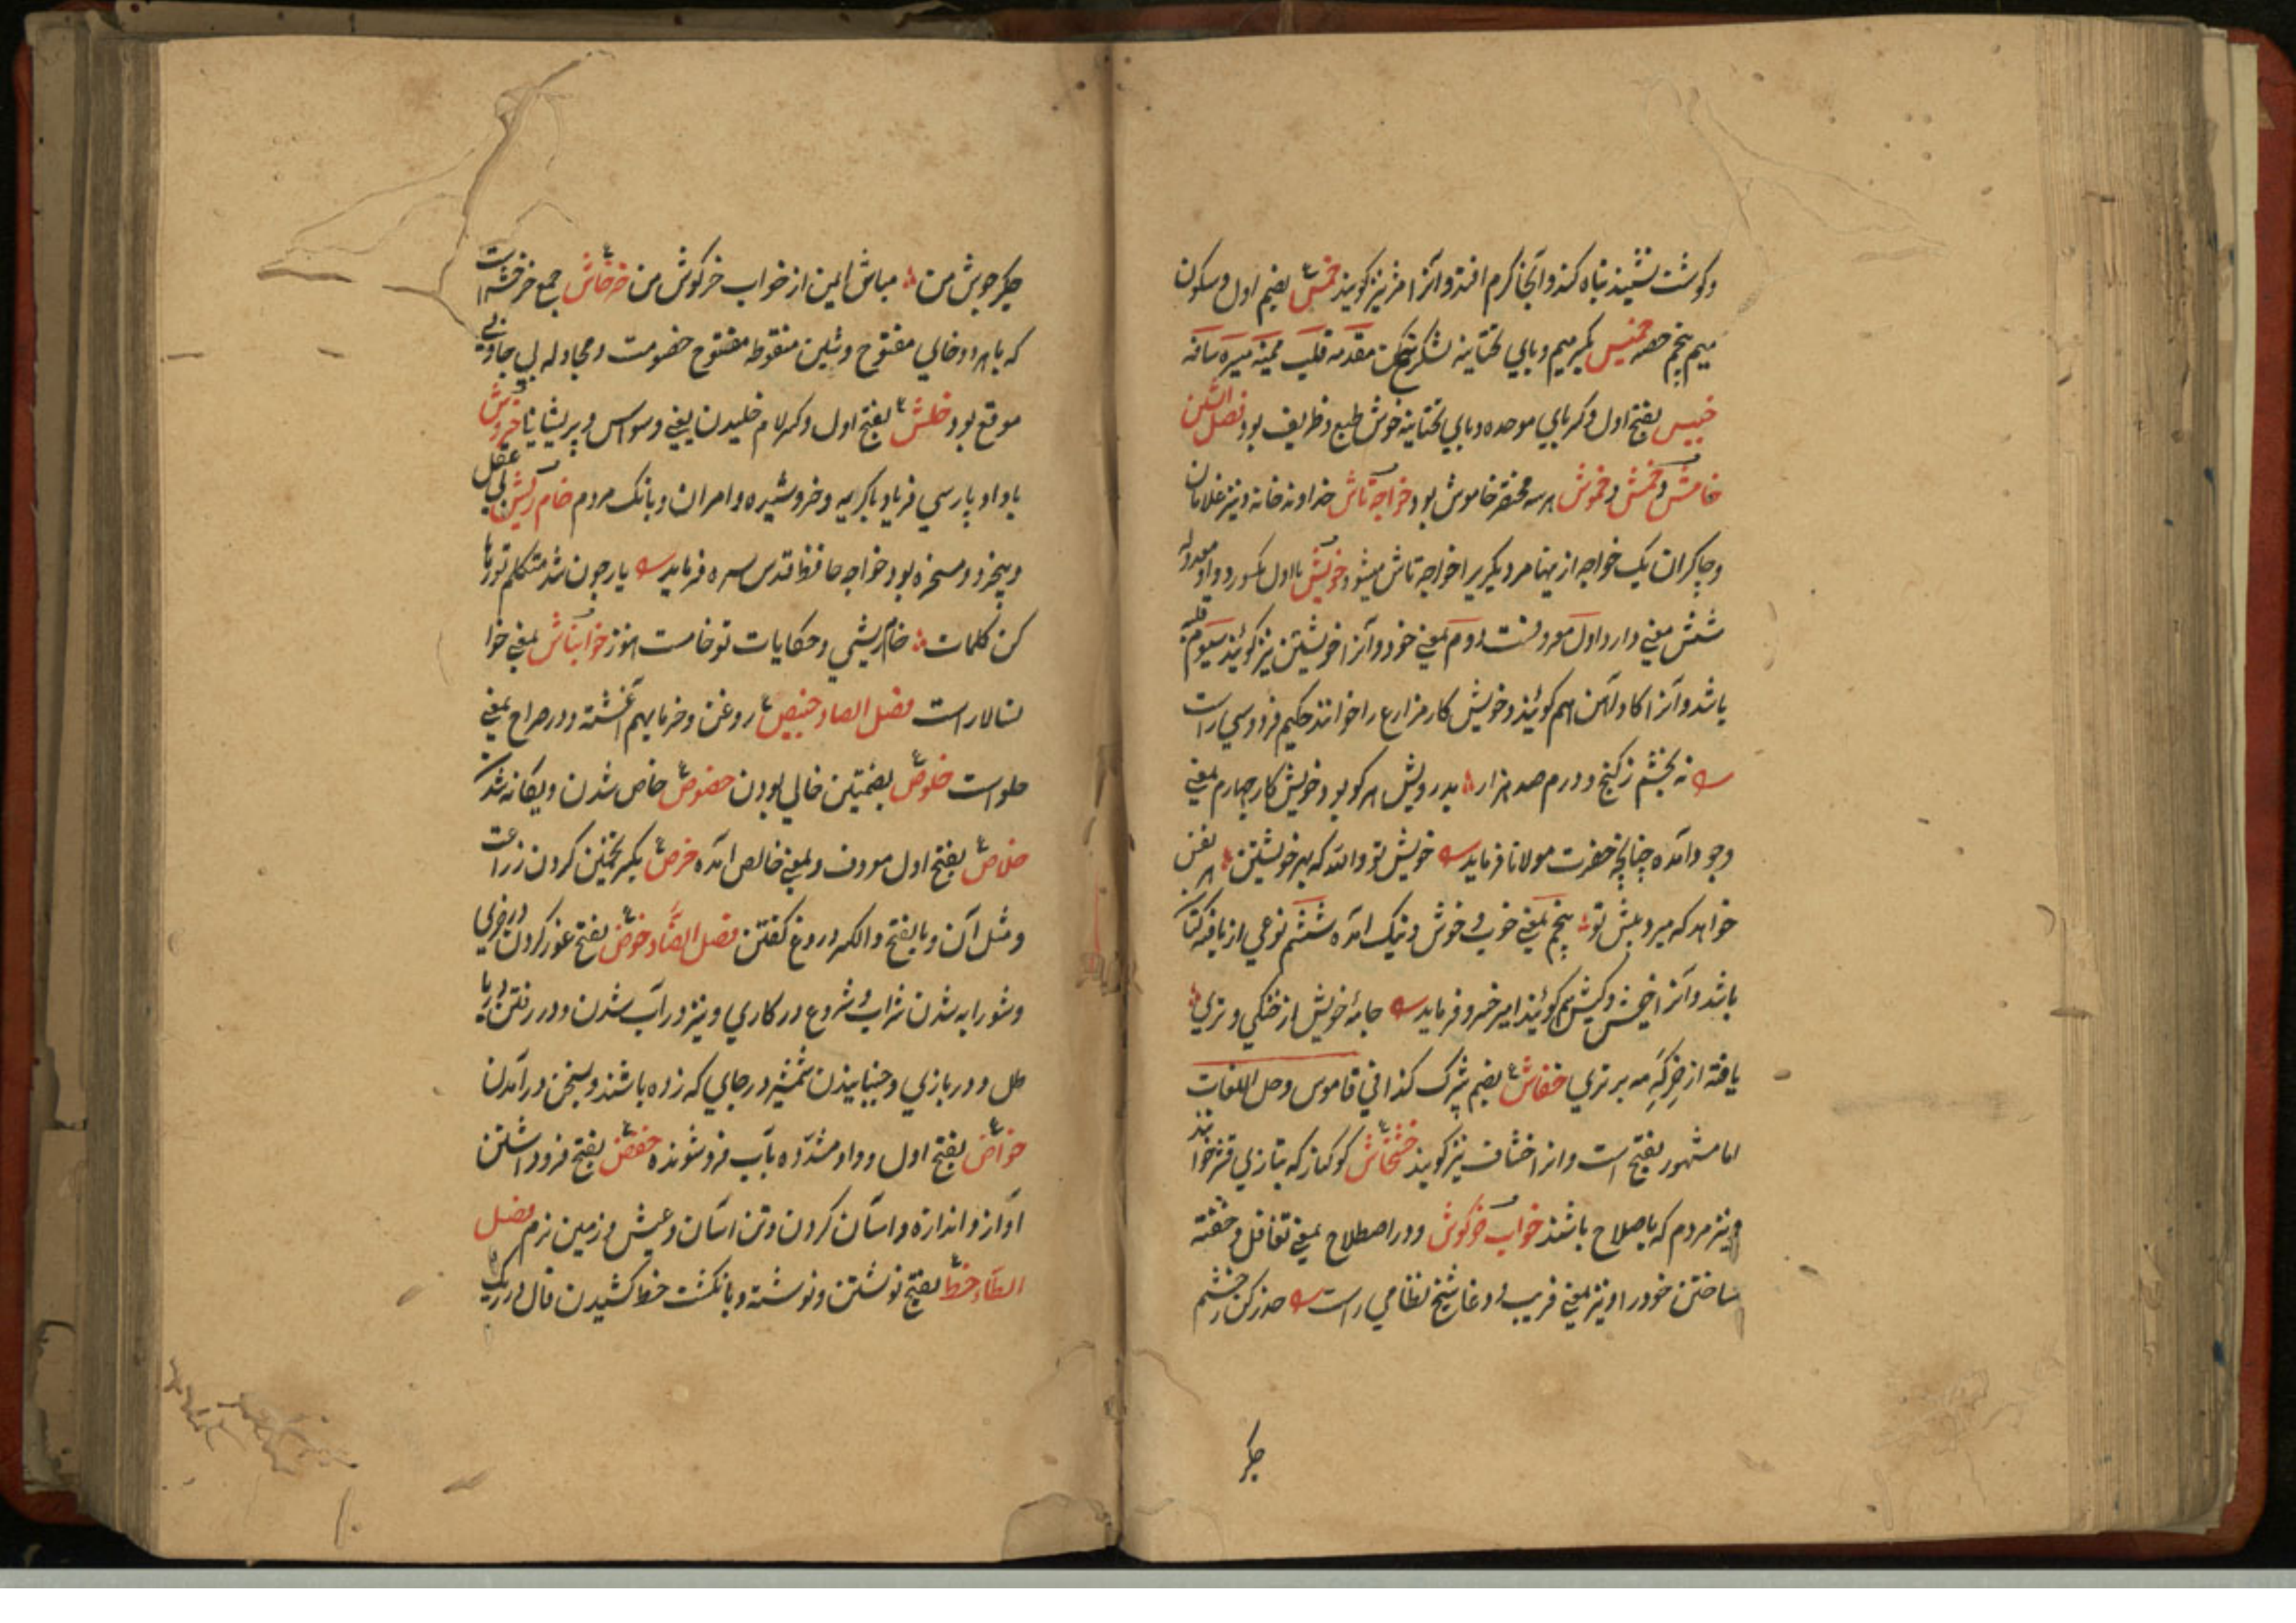 وکوشت نشیند تباه کند وآنجا کرم افتد وآنرا خر نیز کویند خمس بضم اول وسکون
میم پنجم حصه خمیس بکسر میم ویای تحتانیه لشکر مقدمه قلب میمنه میسره ساقه
خبیس بفتح اول وکسر بای موحده ویای تحتانیه خوش طبع وظریف بود فصل الشین
خامش وخمش وخموش هرسه مختصر خاموش بود خواجه تاش خداوند خانه ونیز غلامان
وچاکران یک خواجه ازینها مر دیکریرا خواجه تاش میشود خویش بااول مکسور وواو معدوله
شش معنی دارد اول مردانست دوم بمعنی خود وآنرا خویشتن نیز کویند سیوم قلبه
باشد وآنرا کاوآهن هم کویند وخویش کار مزارع را خوانند حکیم فردوسی راست
نه بخشم زکنج ودرم صد هزار بدرویش هرکو بود خویش کار چهارم بمعنی
وجود آمده چنانچه حضرت مولانا فرماید خویش تو والله که بهر خویشتن هر نفس
خواهد که میرد پیش تو پنجم بمعنی خوب وخوش ونیک آمده ششم نوعی از بافته کتان
باشد وآنرا خیش وکیش هم کویند امیر خسرو فرماید جامهٔ خویش از خنکی وتری
یافته از خرکه مه برتری خفاش بضم شپرک کذا فی قاموس وحل اللغات
اما مشهور بفتح است وانرا خشاف نیز کویند خشخاش کوکنار که بتازی خوانند
ونیز مردم که باصلاح باشند خواب خرکوش ودر اصطلاح بمعنی تغافل وخفته
ساختن خود را ونیز بمعنی فریب ودغا شیخ نظامی راست حذر کن زخشم
جکر
جکر جوش من مباش ایمن از خواب خرکوش من خرخاش جمع خرخشه است
که باهردو خای مفتوح وشین منقوطه مفتوح خصومت ومجادله بی جا وبی
موقع بود خلش بفتح اول وکسر لام خلیدن یعنی وسواس وپریشانی خروش
باواو پارسی فریاد باکریه وخروشیده وامران وبانک مردم خام ریش بی عقل
وبیخرد ومسخره بود خواجه حافظ قدس سره فرماید یار چون شد متکلم تو رها
کن کلمات خام ریشی وحکایات تو خامست هنوز خوابتاش بمعنی خوا
نسالار است فصل الصاد خبیص روغن وخرما بهم آغشته ودر صراح بمعنی
حلواست خلوص بضمتین خالی بودن خصوص خاص شدن ویکانه شدن
خلاص بفتح اول مودون وبمعنی خالص آمده خرص بکسر تخمین کردن زراعت
ومثل آن وبا بفتح والکسر دروغ کفتن فصل الضاد خوض بفتح غور کردن در چیزی
وشورابه شدن شراب وشروع در کاری ونیز در آب شدن ودر رفتن دریا
طل ودر بازی وجنبانیدن شمشیر در جای که زده باشند وبسخن در آمدن
خواض بفتح اول وواو مشدده بآب فروشونده خفض بفتح فرود داشتن
آواز واندازه وآسان کردن وتن آسان وعیش وزمین نرم فصل
الطاء خط بفتح نوشتن ونوشته وبانکشت خط کشیدن فال در ریک